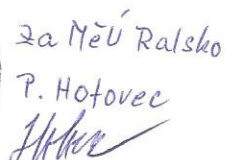 Za MěÚ Ralsko
P. Hotovec